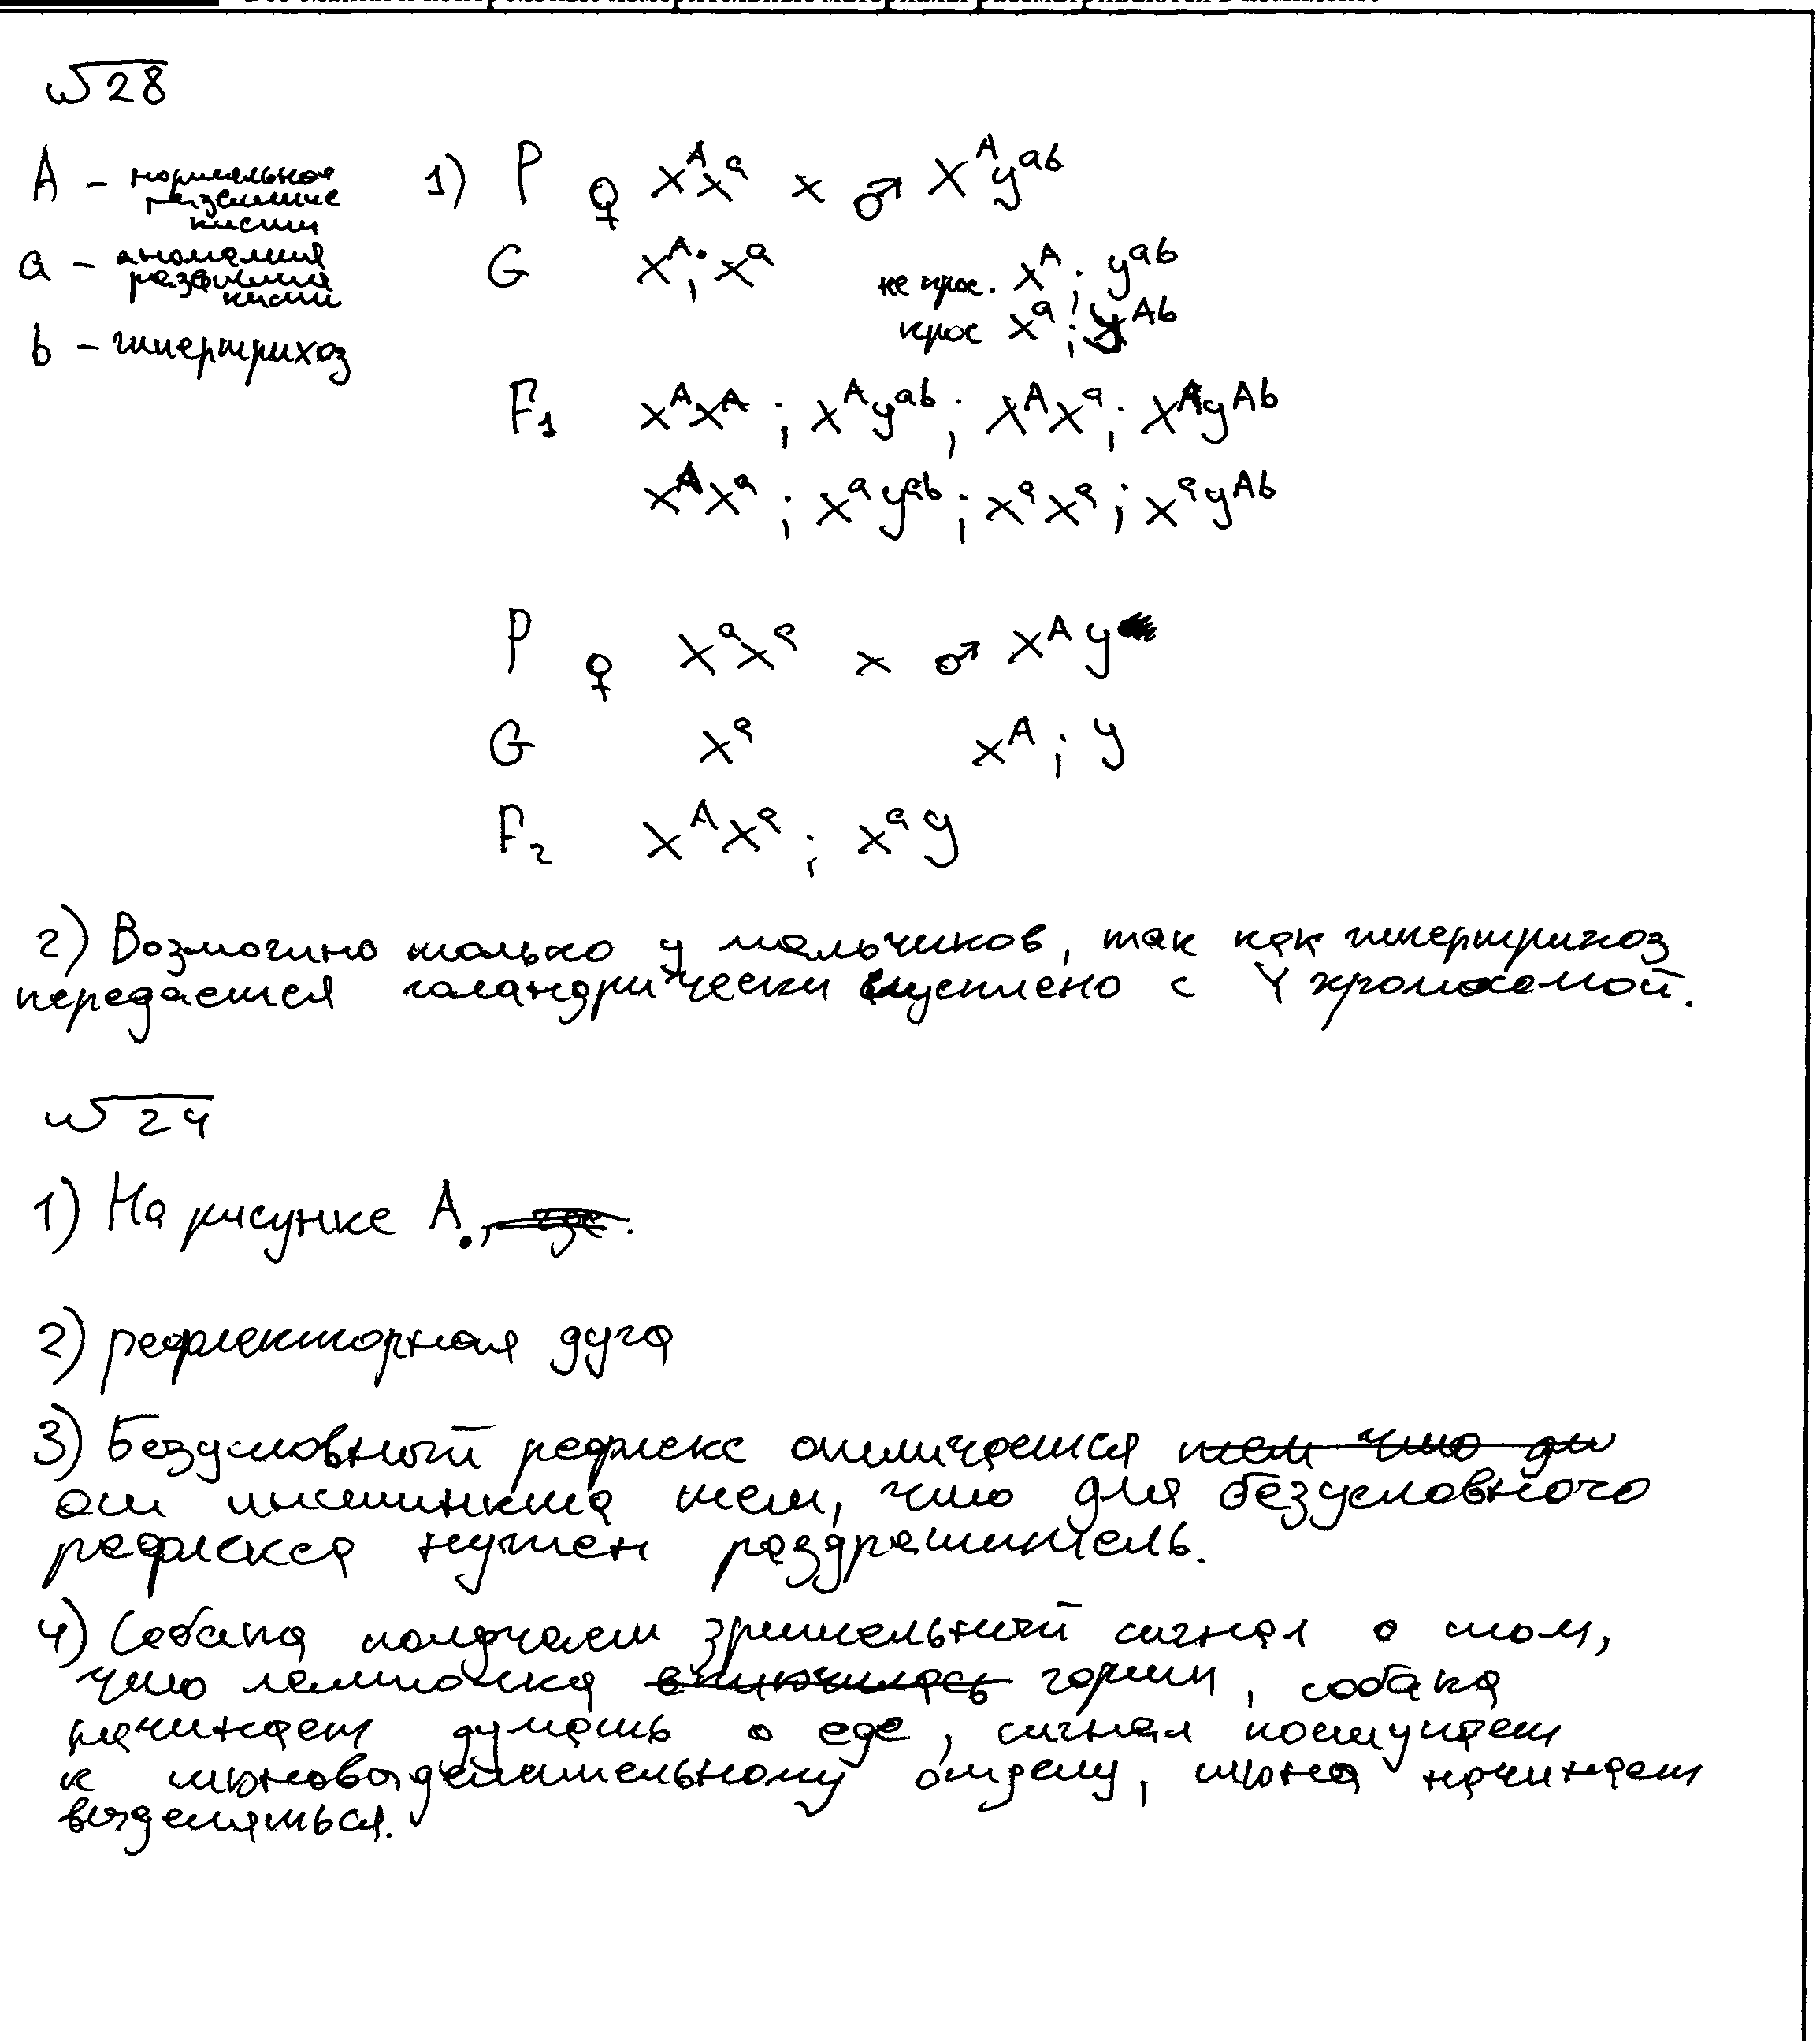 №28
A – нормальное развитие кисти
a – аномалия развития кисти
b – гипертрихоз
1) P ♀ XᴬXᵃ x ♂ XᴬYᵃᵇ
G Xᴬ; Xᵃ не крос. Xᴬ; Yᵃᵇ
крос Xᵃ; Yᴬᵇ
F₁ XᴬXᴬ; XᴬYᵃᵇ; XᴬXᵃ; XᴬYᴬᵇ
XᴬXᵃ; XᵃYᵃᵇ; XᵃXᵃ; XᵃYᴬᵇ
P ♀ XᵃXᵃ x ♂ XᴬY
G Xᵃ Xᴬ; Y
F₂ XᴬXᵃ; XᵃY
2) Возможно только у мальчиков, так как гипертрихоз
передается голандрически сцеплено с Y хромосомой.
№24
1) На рисунке А.
2) рефлекторная дуга
3) Безусловный рефлекс отличается тем что дл
от инстинкта тем, что для безусловного
рефлекса нужен раздражитель.
4) Собака получает зрительный сигнал о том,
что лампочка включилась горит, собака
начинает думать о еде, сигнал поступает
к слюновыделительному отделу, слюна начинает
выделяться.